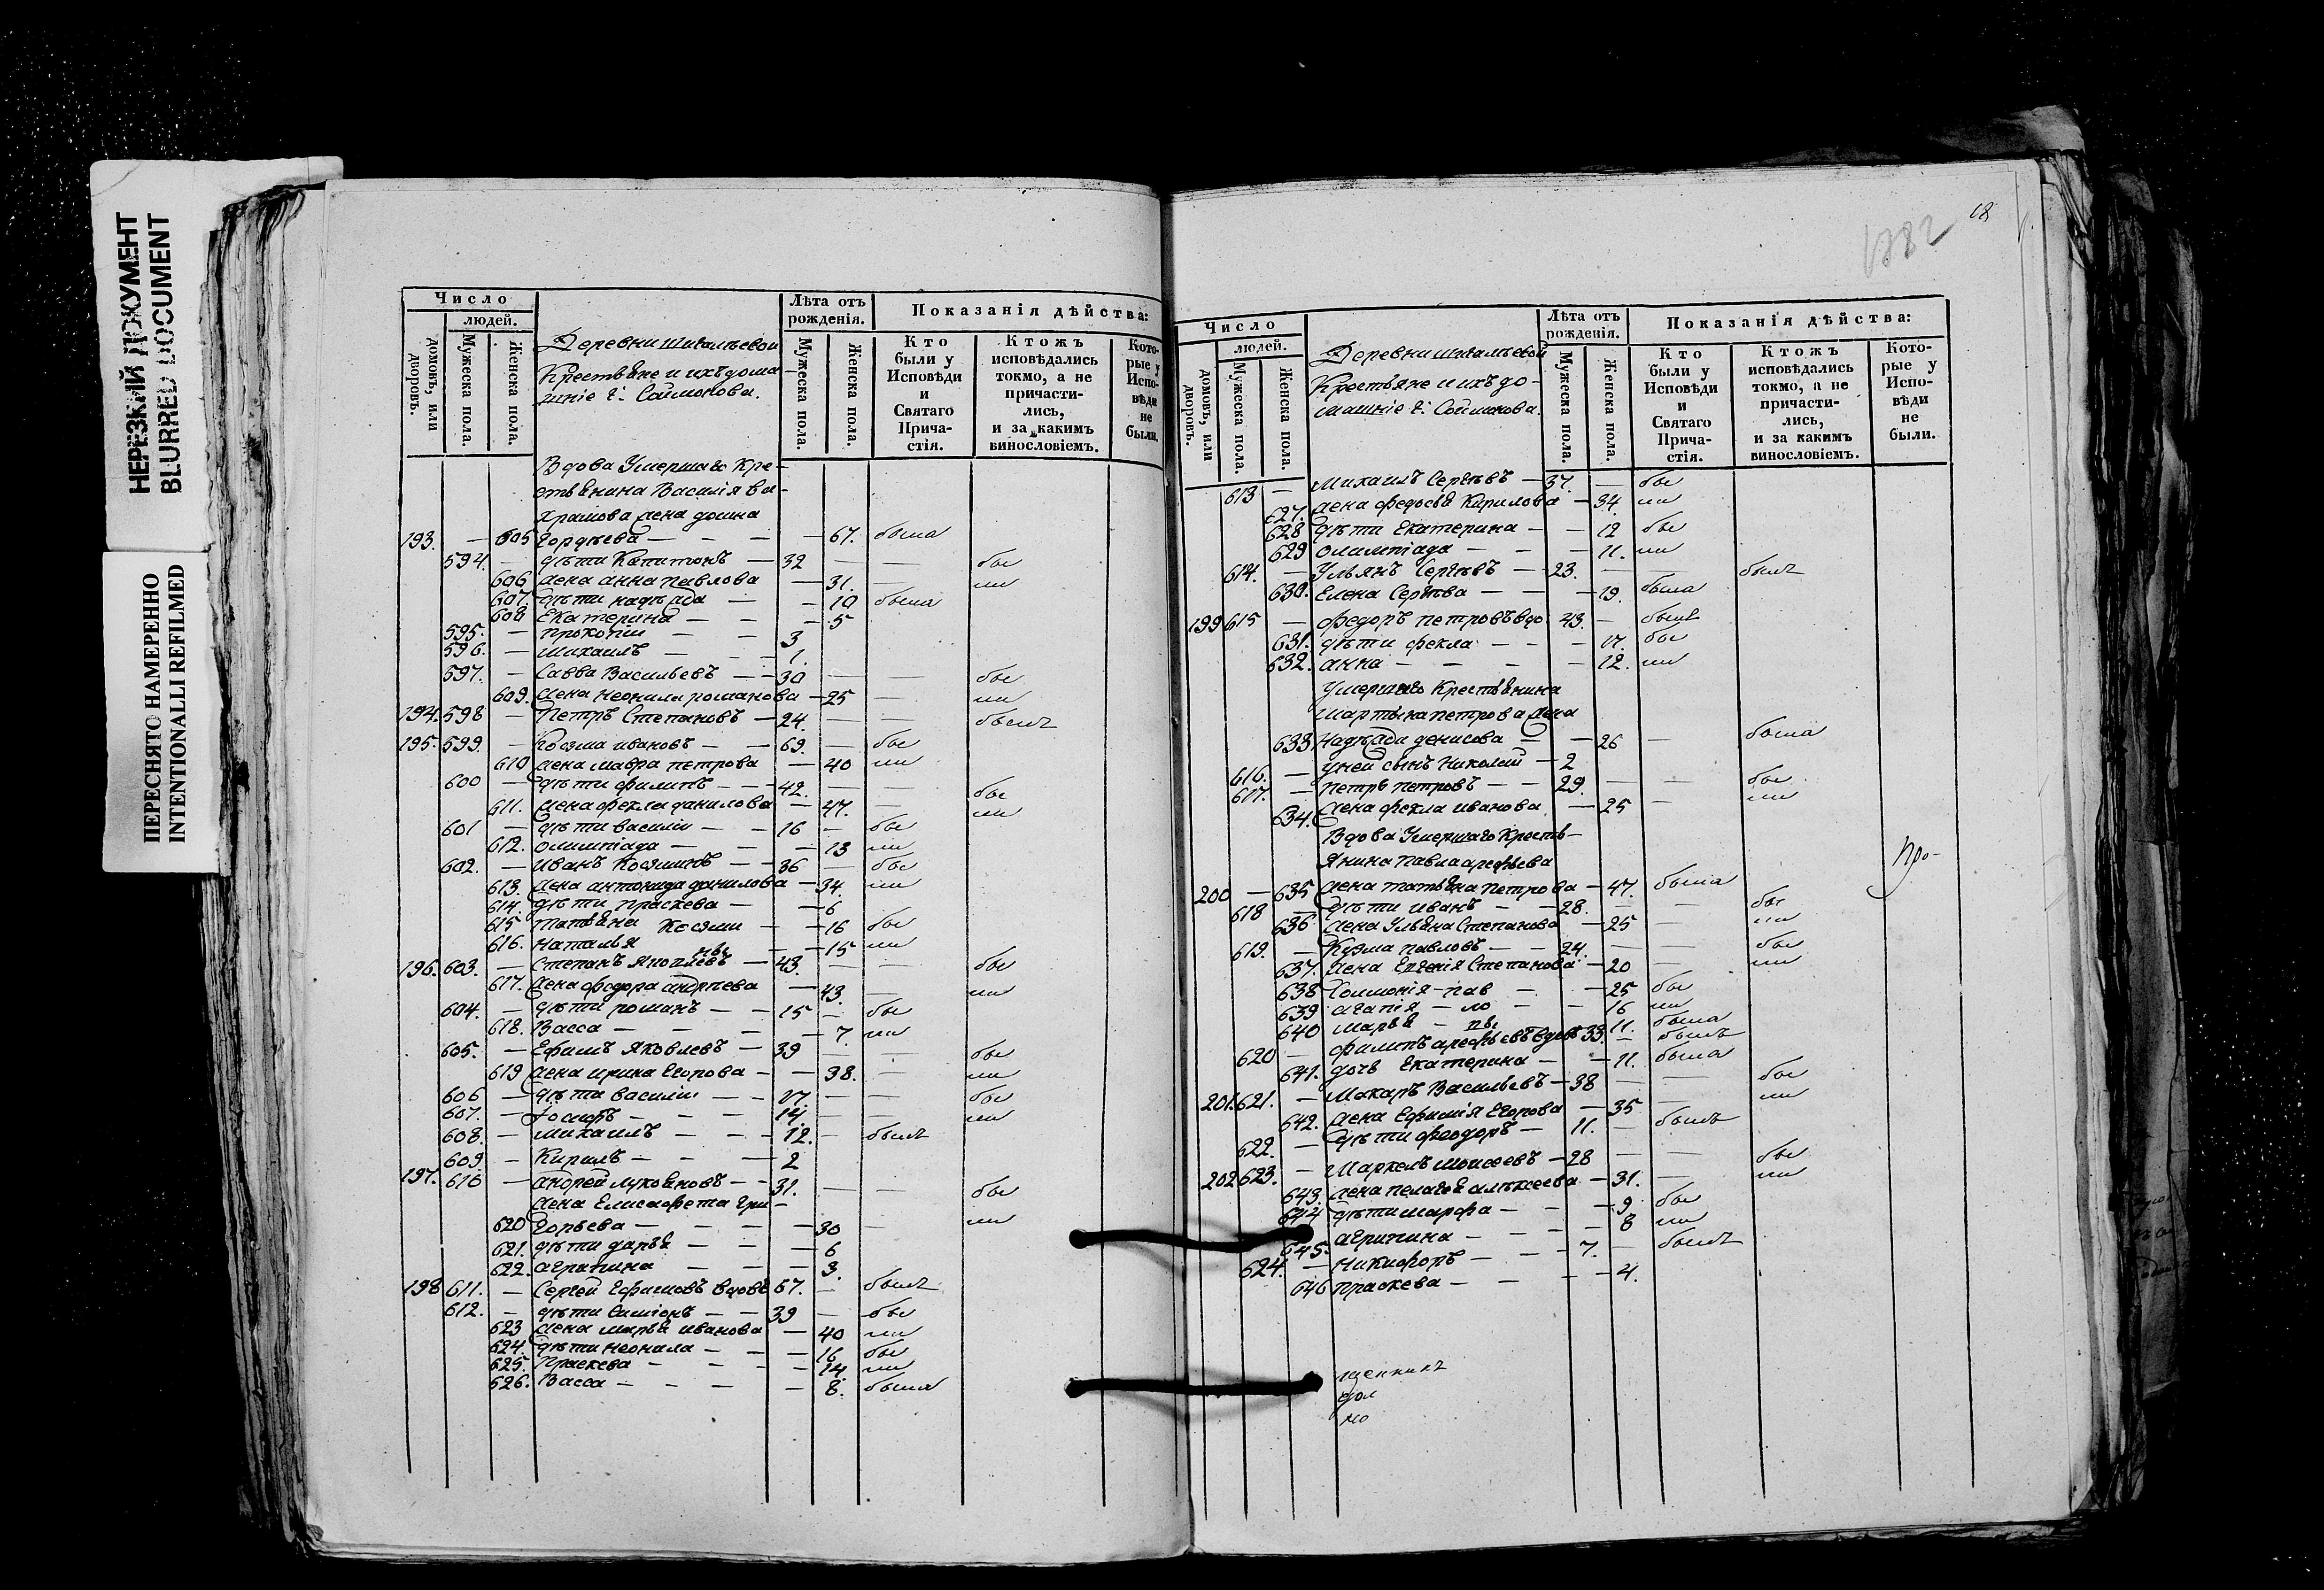 НЕРЕЗКИЙ ДОКУМЕНТ
BLURRED DOCUMENT
ПЕРЕСНЯТО НАМЕРЕННО
INTENTIONALLI REFILMED
Число
людей.
домовъ, или дворовъ.
Мужеска пола.
Женска пола.
Деревни
Крестьяне и ихъ дома-
шніе Г: Соймонова.
Лѣта отъ рожденія.
Мужеска пола.
Женска пола.
Показанія дѣйства:
Кто были у Исповѣди и Святаго Прича-стія.
Ктожъ исповѣдались токмо, а не причасти-лись, и за какимъ винословіемъ.
Кото-рые у Испо-вѣди не были.
Вдова Умершаго Кре-
стьянина Василія Ва-
жена
193. — 605 Гордѣева — — — 67. была
594. — дѣти Капитонъ — 32 — — бы
606 жена анна павлова — 31. — ли
607. дѣти надѣжда — — 10 была
608 Екатерина — — 5
595. — прокопій — — 3
596. — михаилъ — — 1.
597. — Савва Васильевъ — 30 — — бы
609. жена неонила романова — 25 — ли
194. 598 — Петръ Степановъ — 24. — — былъ
195. 599. — Козма ивановъ — 69. — бы
610 жена мавра петрова — 40 ли
600 — дѣти филипъ — 42. — — бы
611. жена фекла данилова — 47. — ли
601 — дѣти василій — 16 — бы
612. олимпіада — — 13 ли
602. — иванъ Козминъ — 36 — бы
613. жена антонида данилова — 34. ли
614. дѣти праскева — — 6
615 татьяна Козми — 16 бы
616. наталья ны — 15 ли
196. 603. — Степанъ Яковлевъ — 43. — — бы
617. жена федора андреева — 43. — ли
604. — дѣти романъ — 15 — бы
618. Васса — — — 7. ли
605. — Ефимъ Яковлевъ — 39 — — бы
619 жена ирина Егорова — 38. — ли
606 — дѣти василій — 17. — — бы
607. — Іосифъ — — 14. — — ли
608. — михаилъ — — 12. — былъ
609. — Кирилъ — — 2
197. 610 — андрей лукояновъ — 31. — — бы
жена Елисафета гри-
620 горьева — — — 30 — ли
621. дѣти дарья — — 6
622. агрипина — — 3.
198 611. — Сергей Ефимовъ вдовъ 67. — былъ
612. — дѣти Симіонъ — 39 — бы
623 жена марья иванова — 40 ли
624. дѣти неонила — — 16 бы
625. Праскева — — 14. ли
626. Васса — — — 8. была
1782
18
Число
людей.
домовъ, или дворовъ.
Мужеска пола.
Женска пола.
Деревни
Крестьяне и ихъ до-
машніе Г: Соймонова.
Лѣта отъ рожденія.
Мужеска пола.
Женска пола.
Показанія дѣйства:
Кто были у Исповѣди и Святаго Прича-стія.
Ктожъ исповѣдались токмо, а не причасти-лись, и за какимъ винословіемъ.
Кото-рые у Испо-вѣди не были.
613 — Михаилъ Сергѣевъ — 37. — бы
627. жена федосья Кирилова — 34. ли
628 дѣти Екатерина — 12 бы
629 олимпіада — — 11. ли
614. — Ульянъ Сергѣевъ — 23. — — былъ
630. Елена Сергѣва — — 19. была
199 615 — федоръ петровъ вдо 43. — былъ
631. дѣти фекла — — 17. бы
632. анна — — — 12. ли
Умершаго Крестьянина
мартына петрова жена
633 Надѣжда денисова — 26 — была
616. — у ней сынъ Николай — 2
617. — петръ петровъ — 29. — — бы
634. жена фекла иванова — 25 — ли
Вдова Умершаго Кресть-
янина павла арефьева
200 — 635 жена татьяна петрова — 47. была
618 — дѣти иванъ — 28. — — бы
636 жена Ульяна Степанова — 25 — ли
619. — Кузма павловъ — 24. — — бы
637. жена Евгенія Степанова — 20 — ли
638 Соломонія пав — 25 бы
639 агапія — ло — 16 ли
640 марья — вы 11. была
620 — филипъ арефьевъ вдовъ 33. — былъ
641. дочь Екатерина — 11. была
201. 621. — Макаръ Васильевъ — 38 — — бы
642. жена Ефимія Егорова — 35 — ли
622. — дѣти феодоръ — 11. — былъ
202 623. — Маркелъ моисеевъ — 28 — — бы
643. жена пелагея алексеева — 31. — ли
644 дѣти марфа — — 9 бы
645. агрипина — — 8 ли
624. — Никифоръ — 7. — былъ
646 праскева — — 4.
Про-
щенникъ